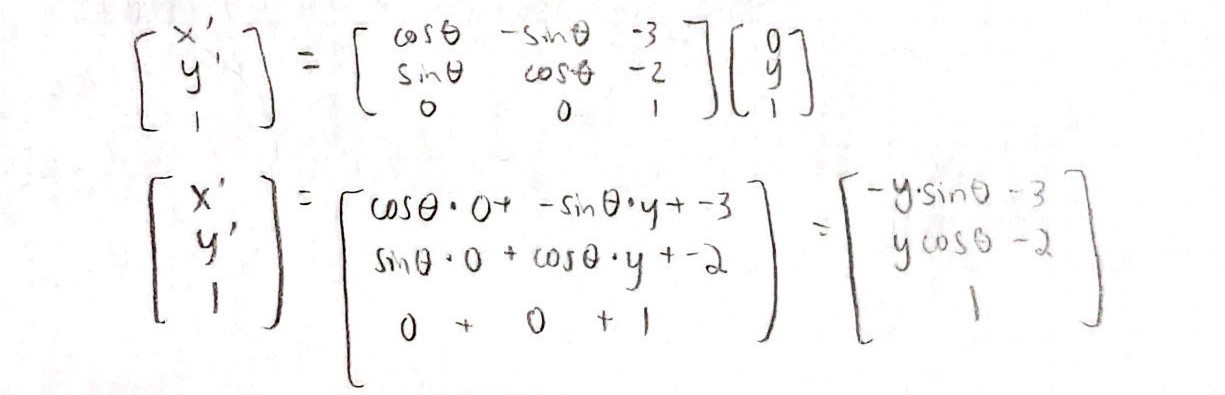 [ x' y' 1 ] = [ cosθ -sinθ -3 ; sinθ cosθ -2 ; 0 0 1 ] [ 0 y 1 ]
[ x' y' 1 ] = [ cosθ · 0 + -sinθ · y + -3 ; sinθ · 0 + cosθ · y + -2 ; 0 + 0 + 1 ] = [ -y·sinθ -3 ; y cosθ -2 ; 1 ]